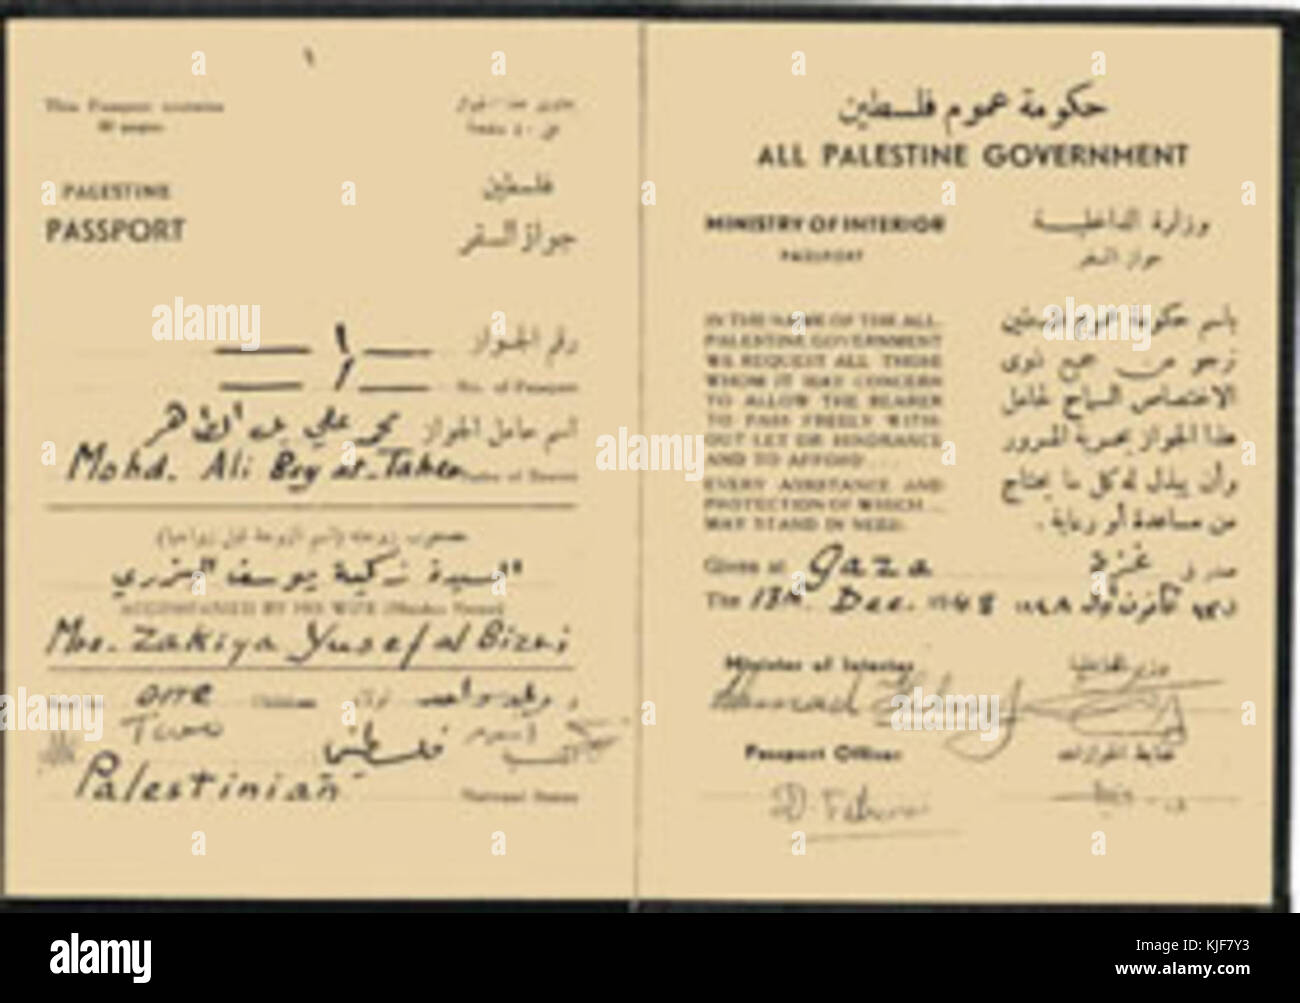 ١
This Passport contains
pages
PALESTINE
PASSPORT
فلسطين
جواز السفر
رقم الجواز ١
1 No. of Passport
اسم حامل الجواز محمد علي بك الطاهر
Mohd. Ali Bey at-Taher Name of Bearer
السيدة زكية يوسف البزري
ACCOMPANIED BY HIS WIFE (Maiden Name)
Mrs. Zakiya Yusef al Bizri
one Children
Two
فلسطيني
Palestinian National Status
حكومة عموم فلسطين
ALL PALESTINE GOVERNMENT
MINISTRY OF INTERIOR
PASSPORT
وزارة الداخلية
جواز السفر
IN THE NAME OF THE ALL-
PALESTINE GOVERNMENT
WE REQUEST ALL THOSE
WHOM IT MAY CONCERN
TO ALLOW THE BEARER
TO PASS FREELY WITH-
OUT LET OR HINDRANCE
AND TO AFFORD
EVERY ASSISTANCE AND
PROTECTION OF WHICH
MAY STAND IN NEED.
باسم حكومة عموم فلسطين
نرجو من جميع ذوي
الاختصاص السماح لحامل
هذا الجواز بحرية المرور
وأن يبذل له كل ما يحتاج
من مساعدة أو رعاية .
Given at Gaza
صدر في غزة
The 13th. Dec. 1948
كانون أول ١٩٤٨
Minister of Interior
وزير الداخلية
Ahmad Hilmy
Passport Officer
ضابط الجوازات
a alamy
alamy
Image ID: KJF7Y3
www.alamy.com